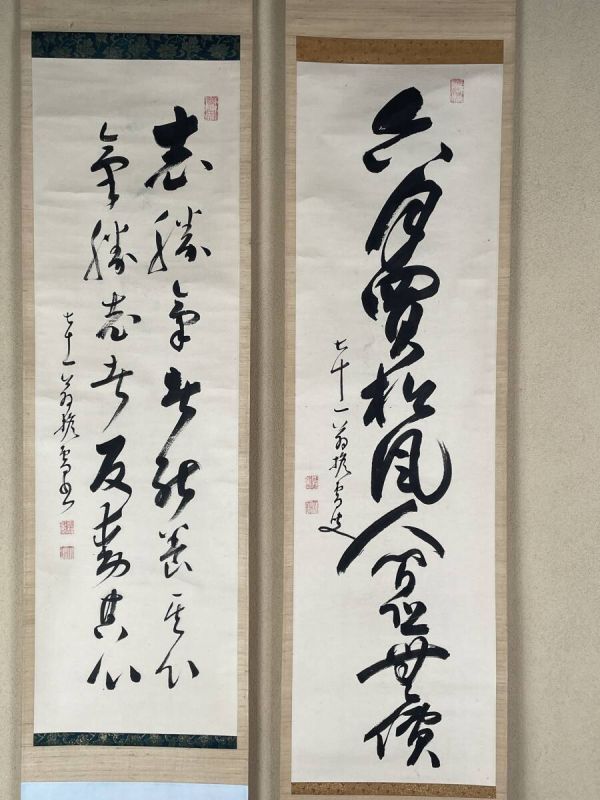 六月買松風人間恐無價
七十一翁擔雪叟
志勝氣者能養其心
氣勝志者反動其心
七十一翁擔雪書